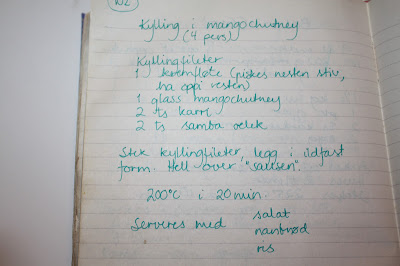 102
Kylling i mangochutney
(4 pers)
Kyllingfileter
1 kremfløte (piskes nesten stiv,
ha oppi resten)
1 glass mangochutney
2 ts karri
2 ts samba oelek
Stek kyllingfileter, legg i ildfast
form. Hell over "sausen".
200°C i 20 min.
Serveres med salat
nanbrød
ris